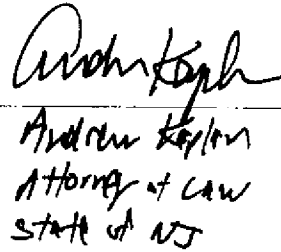 Andrew Kaplan
Andrew Kaplan
Attorney at Law
State of NJ